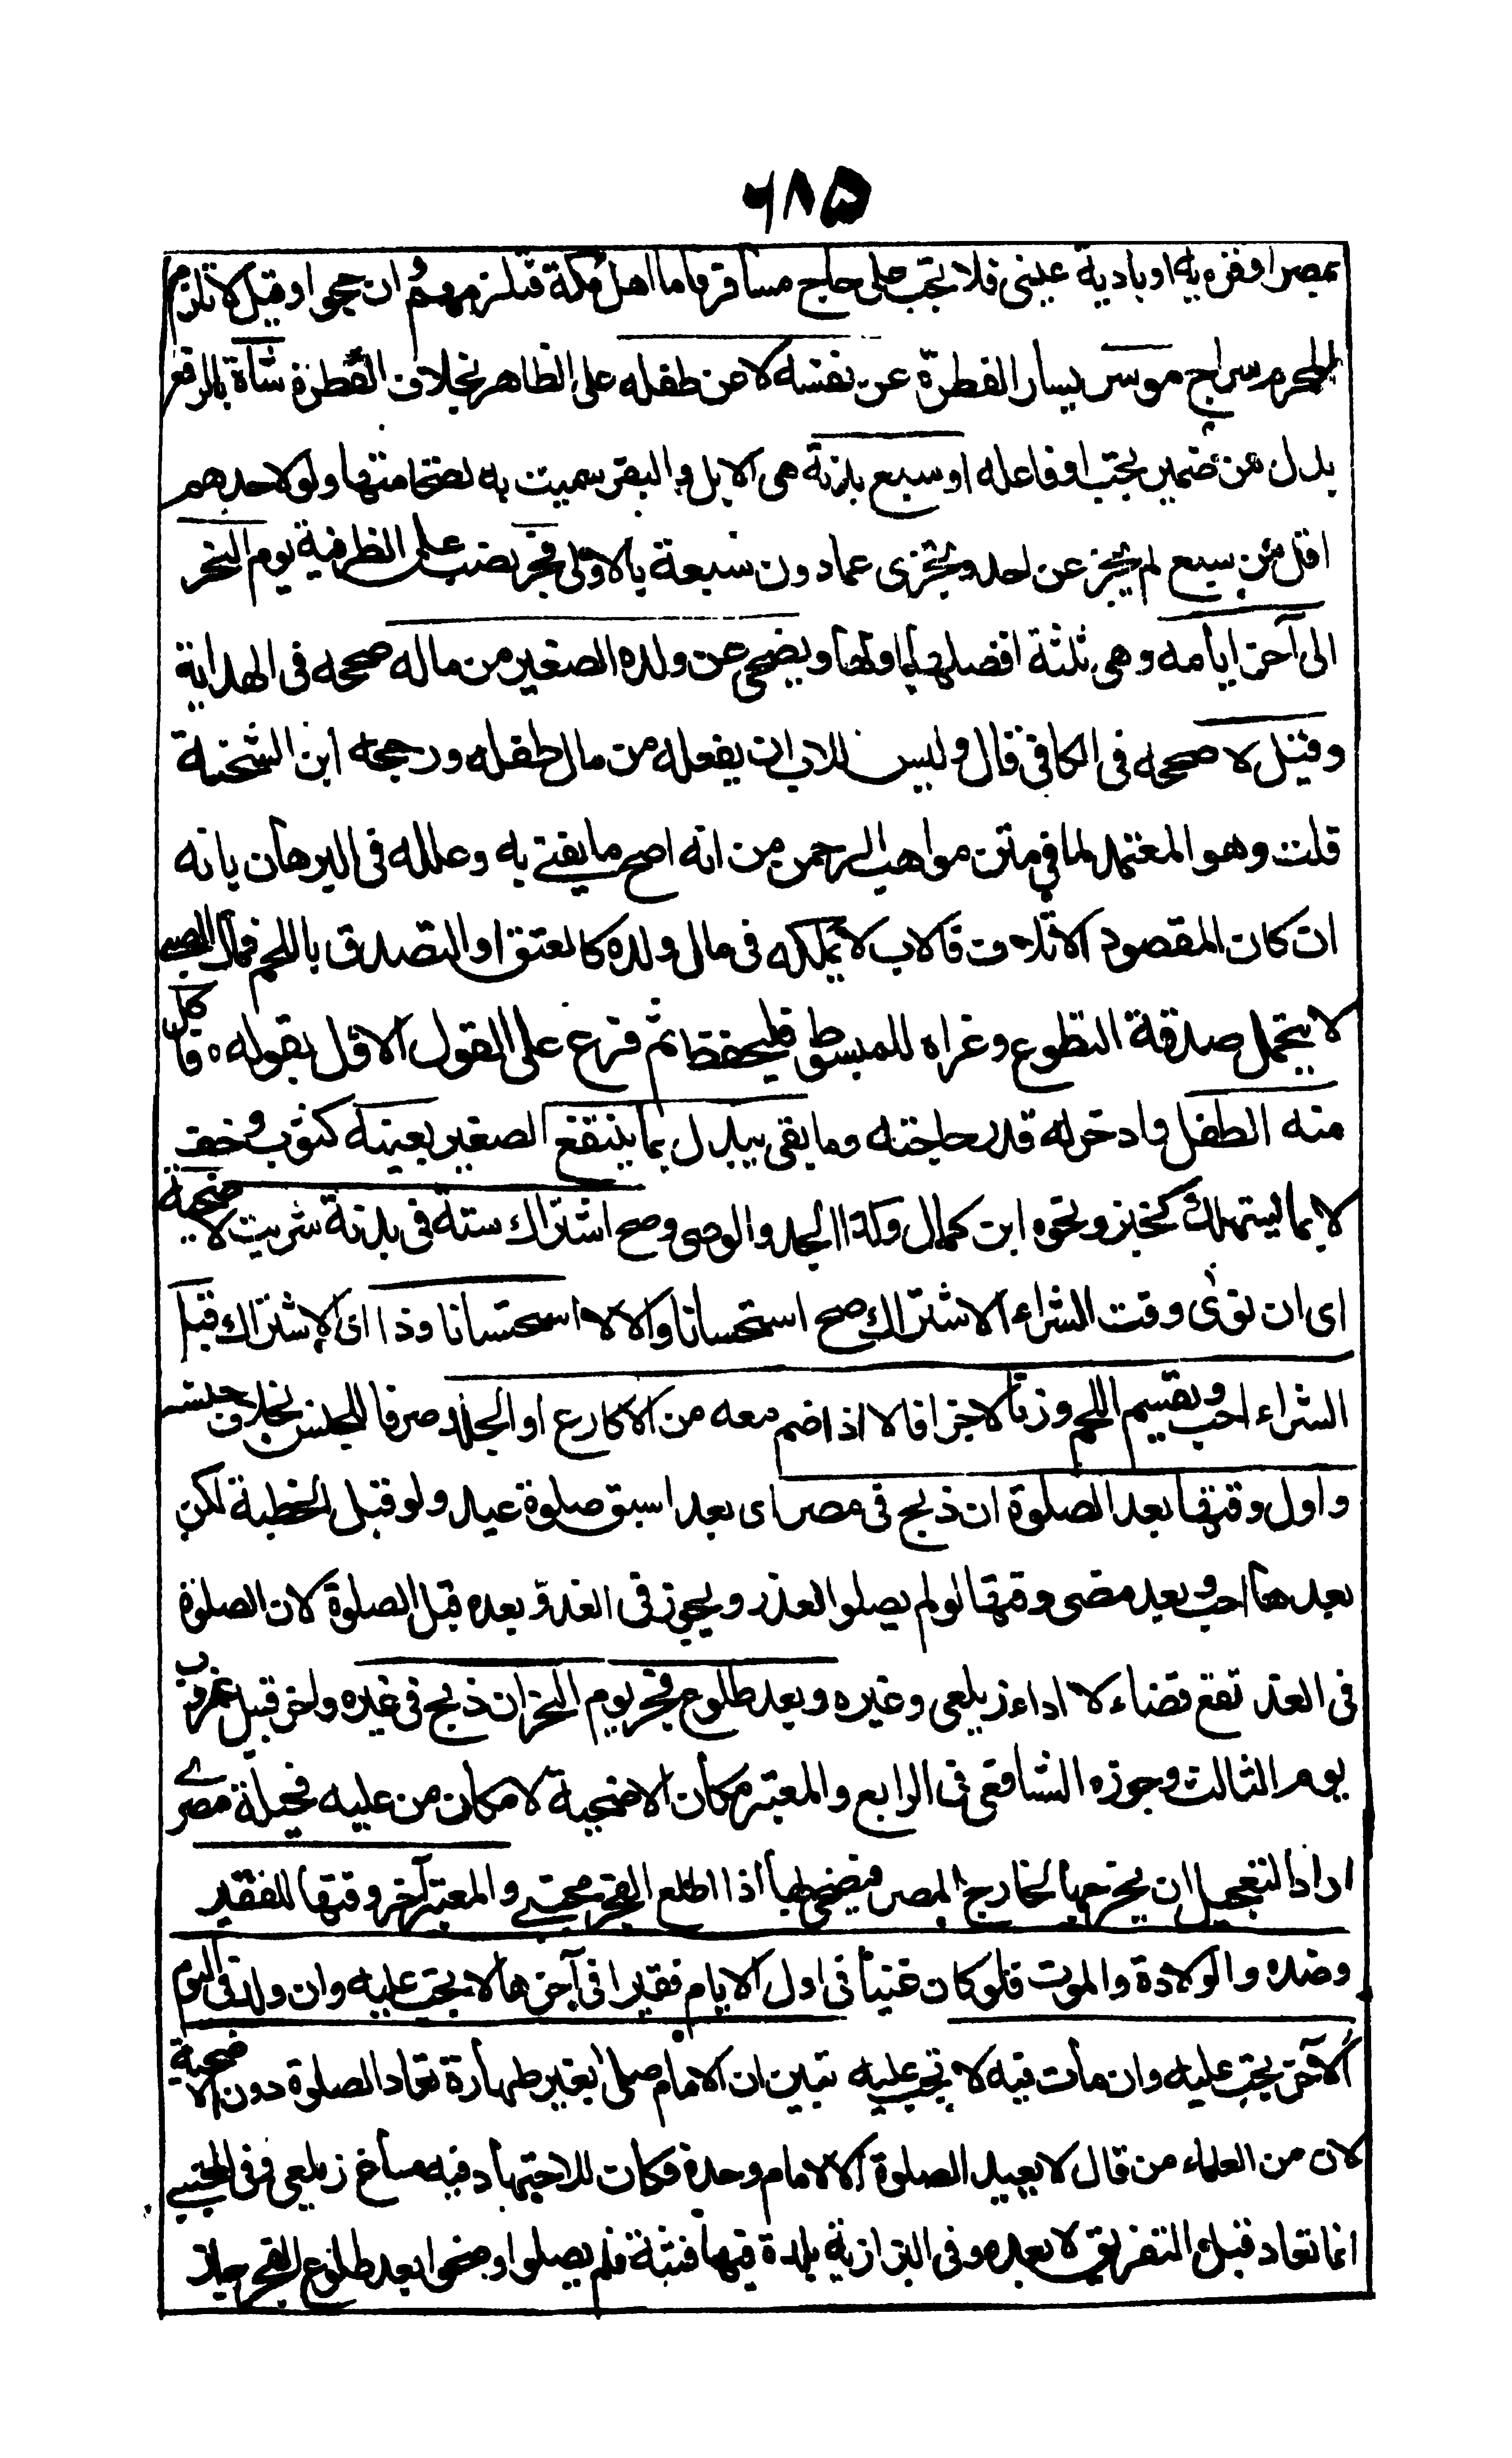 ٦٨٥
بمصر او قرية او بادية عينى فلا تجب على حاج مسافر فاما اهل مكة فتلزمهم ان حجوا وقيل لا تلزم
المحرم سراج موسر يسار الفطرة عن نفسه لا عن طفله على الظاهر بخلاف الفطرة شاة بالرفع
بدل من ضمير يجب او فاعله او سبع بدنة هى الابل والبقر سميت به لضخامتها ولو لاحدهم
اقل من سبع لم يجز عن احد ويجزى عما دون سبعة بالاولى فجر نصب على الظرفية يوم النحر
الى آخر ايامه وهى ثلثة افضلها اولها ويضحى عن ولده الصغير من ماله صححه فى الهداية
وقيل لا صححه فى الكافى قال وليس للاب ان يفعله من مال طفله ورجحه ابن الشحنة
قلت وهو المعتمد لما فى متن مواهب الرحمن من انه اصح ما يفتى به وعلله فى البرهان بانه
ان كان المقصود الاتلاف فالاب لا يملكه فى مال ولده كالعتق او التصدق باللحم فمال الصبى
لا يحتمل صدقة التطوع وعزاه للمبسوط فليحفظ ثم فرع على القول الاول بقوله ٥ واكل
منه الطفل وادخر له قدر حاجته وما بقى يبدل بما ينتفع الصغير بعينه كثوب وخف
لا بما يستهلك كخبز ونحوه ابن كمال وكذا الجد والوصى وصح اشتراك ستة فى بدنة شريت لاضحية
اى ان نوى وقت الشراء الاشتراك صح استحسانا والا لا استحسانا وذا اى الاشتراك قبل
الشراء احب ويقسم اللحم وزنا لا جزافا الا اذا ضم معه من الاكارع او الجلد صرفا للجنس بخلاف جنسه
واول وقتها بعد الصلوة ان ذبح فى مصر اى بعد اسبق صلوة عيد ولو قبل الخطبة لكن
بعدها احب وبعد مضى وقتها لو لم يصلوا لعذر ويجوز فى الغد وبعده قبل الصلوة لان الصلوة
فى الغد تقع قضاء لا اداء زيلعى وغيره وبعد طلوع فجر يوم النحر ان ذبح فى غيره واخره قبل غروب
يوم الثالث وجوزه الشافعى فى الرابع والمعتبر مكان الاضحية لا مكان من عليه فحيلة مصرى
اراد التعجيل ان يخرجها لخارج المصر فيضحى بها اذا اطلع الفجر مجتبى والمعتبر آخر وقتها للفقير
وضده والولادة والموت فلو كان غنيا فى اول الايام فقيرا فى آخرها لا يجب عليه وان ولد فى اليوم
الآخر يجب عليه وان مات فيه لا تجب عليه تبين ان الامام صلى بغير طهارة تعاد الصلوة دون الاضحية
لان من العلماء من قال لا يعيد الصلوة الا الامام وحده فكان للاجتهاد فيه مساغ زيلعى وفى المجتبى
انما تعاد قبل التفريق لا بعده وفى البزازية بلدة فيها فتنة فلم يصلوا وضحوا بعد طلوع الفجر جاز